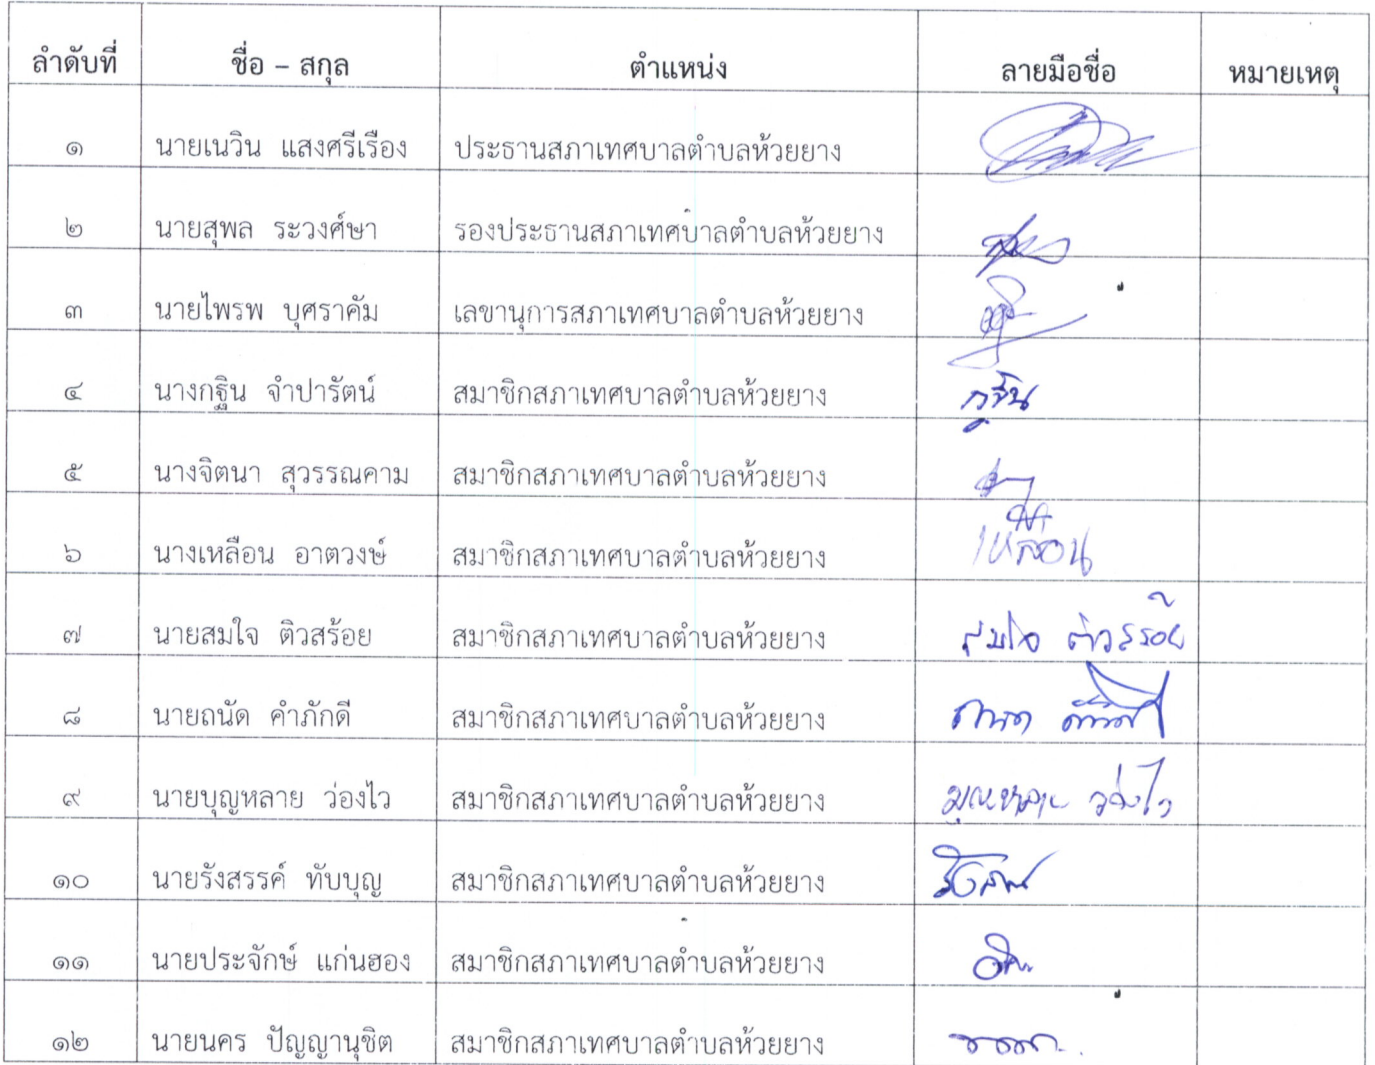 ลำดับที่ ชื่อ – สกุล ตำแหน่ง ลายมือชื่อ หมายเหตุ
๑ นายเนวิน แสงศรีเรือง ประธานสภาเทศบาลตำบลห้วยยาง
๒ นายสุพล ระวงศ์ษา รองประธานสภาเทศบาลตำบลห้วยยาง
๓ นายไพรพ บุศราคัม เลขานุการสภาเทศบาลตำบลห้วยยาง
๔ นางกฐิน จำปารัตน์ สมาชิกสภาเทศบาลตำบลห้วยยาง กฐิน
๕ นางจิตนา สุวรรณคาม สมาชิกสภาเทศบาลตำบลห้วยยาง
๖ นางเหลือน อาตวงษ์ สมาชิกสภาเทศบาลตำบลห้วยยาง เหลือน
๗ นายสมใจ ติวสร้อย สมาชิกสภาเทศบาลตำบลห้วยยาง สมใจ ติวสร้อย
๘ นายถนัด คำภักดี สมาชิกสภาเทศบาลตำบลห้วยยาง
๙ นายบุญหลาย ว่องไว สมาชิกสภาเทศบาลตำบลห้วยยาง บุญหลาย ว่องไว
๑๐ นายรังสรรค์ ทับบุญ สมาชิกสภาเทศบาลตำบลห้วยยาง
๑๑ นายประจักษ์ แก่นฮอง สมาชิกสภาเทศบาลตำบลห้วยยาง
๑๒ นายนคร ปัญญานุชิต สมาชิกสภาเทศบาลตำบลห้วยยาง